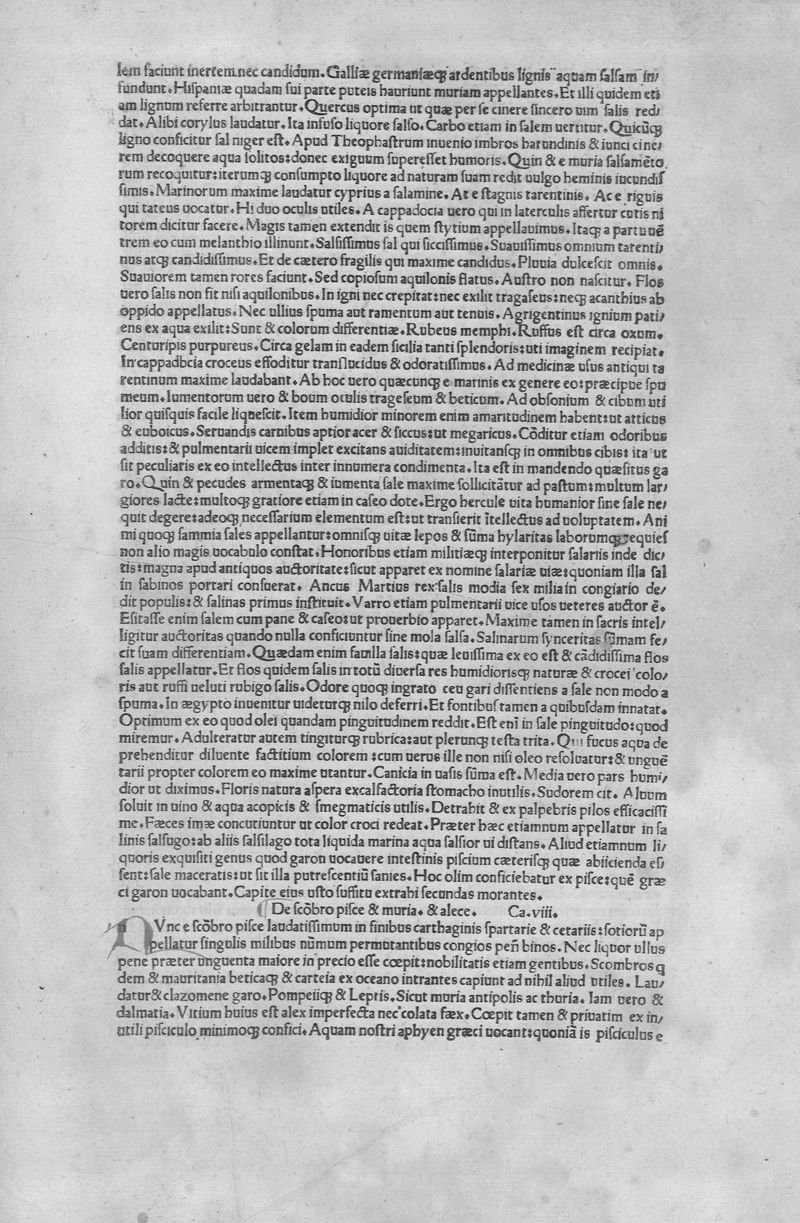 lem faciunt inertem nec candidum. Galliæ germaniæqꝫ ardentibus lignis aquam ſalſam in/
fundunt. Hiſpaniæ quadam ſui parte puteis hauriunt muriam appellantes. Et illi quidem eti
am lignum referre arbitrantur. Quercus optima ut quæ per ſe cinere ſincero uim ſalis red/
dat. Alibi corylus laudatur. Ita infuſo liquore ſalſo. Carbo etiam in ſalem uertitur. Quicūqꝫ
ligno conficitur ſal niger eſt. Apud Theophaſtrum inuenio imbros harundinis & iunci cine/
rem decoquere aqua ſolitos: donec exiguum ſupereſſet humoris. Quin & e muria ſalſamēto
rum recoquitur: iterumqꝫ conſumpto liquore ad naturam ſuam redit uulgo heminis iucundiſ
ſimis. Marinorum maxime laudatur cyprius a ſalamine. At e ſtagnis tarentinis. Ac e riguis
qui tateus uocatur. Hi duo oculis utiles. A cappadocia uero qui in laterculis affertur cutis ni
torem dicitur facere. Magis tamen extendit is quem ſtytium appellauimus. Itaqꝫ a partu uē
trem eo cum melanthio illinunt. Salſiſſimus ſal qui ſicciſſimus. Suauiſſimus omnium tarenti/
nus atqꝫ candidiſſimus. Et de cætero fragilis qui maxime candidus. Pluuia dulceſcit omnis.
Suauiorem tamen rores faciunt. Sed copioſum aquilonis flatus. Auſtro non naſcitur. Flos
uero ſalis non fit niſi aquilonibus. In igni nec crepitat: nec exilit tragaſeus: neqꝫ acanthius ab
oppido appellatus. Nec ullius ſpuma aut ramentum aut tenuis. Agrigentinus ignium pati/
ens ex aqua exilit: Sunt & colorum differentiæ. Rubeus memphi. Ruffus eſt circa oxum.
Centuripis purpureus. Circa gelam in eadem ſicilia tanti ſplendoris: uti imaginem recipiat.
In cappadocia croceus effoditur tranſlucidus & odoratiſſimus. Ad medicinæ uſus antiqui ta
rentinum maxime laudabant. Ab hoc uero quæcunqꝫ e marinis ex genere eo: præcipue ſpu
meum. Iumentorum uero & boum oculis trageſeum & beticum. Ad obſonium & cibum uti
lior quiſquis facile liqueſcit. Item humidior minorem enim amaritudinem habent: ut atticus
& euboicus. Seruandis carnibus aptior acer & ſiccus: ut megaricus. Cōditur etiam odoribus
additis: & pulmentarii uicem implet excitans auiditatem: inuitanſqꝫ in omnibus cibis: ita ut
ſit peculiaris ex eo intellectus inter innumera condimenta. Ita eſt in mandendo quæſitus ga
ro. Quin & pecudes armentaqꝫ & iumenta ſale maxime ſollicitātur ad paſtum: multum lar/
giores lacte: multoqꝫ gratiore etiam in caſeo dote. Ergo hercule uita humanior ſine ſale ne/
quit degere: adeoqꝫ neceſſarium elementum eſt: ut tranſierit ītellectus ad uoluptatem. Ani
mi quoqꝫ ſammia ſales appellantur: omniſqꝫ uitæ lepos & ſūma hylaritas laborumqꝫ requieſ
non alio magis uocabulo conſtat. Honoribus etiam militiæqꝫ interponitur ſalariis inde dic/
tis: magna apud antiquos auctoritate: ſicut apparet ex nomine ſalariæ uiæ: quoniam illa ſal
in ſabinos portari conſuerat. Ancus Martius rex ſalis modia ſex milia in congiario de/
dit populis: & ſalinas primus inſtituit. Varro etiam pulmentarii uice uſos ueteres auctor ē.
Eſitaſſe enim ſalem cum pane & caſeo: ut prouerbio apparet. Maxime tamen in ſacris intel/
ligitur auctoritas quando nulla conficiuntur ſine mola ſalſa. Salinarum ſynceritas ſūmam fe/
cit ſuam differentiam. Quædam enim fauilla ſalis: quæ leuiſſima ex eo eſt & cādidiſſima flos
ſalis appellatur. Et flos quidem ſalis in totū diuerſa res humidiorisqꝫ naturæ & crocei colo/
ris aut ruffi ueluti rubigo ſalis. Odore quoqꝫ ingrato ceu gari diſſentiens a ſale non modo a
ſpuma. In ægypto inuenitur uideturqꝫ nilo deferri. Et fontibuſ tamen a quibuſdam innatat.
Optimum ex eo quod olei quandam pinguitudinem reddit. Eſt enī in ſale pinguitudo: quod
miremur. Adulteratur autem tingiturqꝫ rubrica: aut plerunqꝫ teſta trita. Qui fucus aqua de
prehenditur diluente factitium colorem: cum uerus ille non niſi oleo reſoluatur: & unguē
tarii propter colorem eo maxime utantur. Canicia in uaſis ſūma eſt. Media uero pars humi/
dior ut diximus. Floris natura aſpera excalfactoria ſtomacho inutilis. Sudorem cit. Aluum
ſoluit in uino & aqua acopicis & ſmegmaticis utilis. Detrahit & ex palpebris pilos efficaciſſi
me. Fæces imæ concutiuntur ut color croci redeat. Præter hæc etiamnum appellatur in ſa
linis ſalſugo: ab aliis ſalſilago tota liquida marina aqua ſalſior ui diſtans. Aliud etiamnum li/
quoris exquiſiti genus quod garon uocauere inteſtinis piſcium cæteriſqꝫ quæ abiicienda eſ/
ſent: ſale maceratis: ut ſit illa putreſcentiū ſanies. Hoc olim conficiebatur ex piſce: quē græ
ci garon uocabant. Capite eius uſto ſuffitu extrahi ſecundas morantes.
De ſcōbro piſce & muria. & alece. Ca. viii.
Vnc e ſcōbro piſce laudatiſſimum in finibus carthaginis ſpartarie & cetariis: ſotiorū ap
pellatur ſingulis milibus nūmum permutantibus congios peñ binos. Nec liquor ullus
pene præter unguenta maiore in precio eſſe cœpit: nobilitatis etiam gentibus. Scombros q
dem & mauritania beticaqꝫ & carteia ex oceano intrantes capiunt ad nihil aliud utiles. Lau/
datur & clazomene garo. Pompeiiqꝫ & Leptis. Sicut muria antipolis ac thuria. Iam uero &
dalmatia. Vitium huius eſt alex imperfecta nec colata fæx. Cœpit tamen & priuatim ex in/
utili piſciculo minimoqꝫ confici. Aquam noſtri aphyen græci uocant: quoniā is piſciculus e